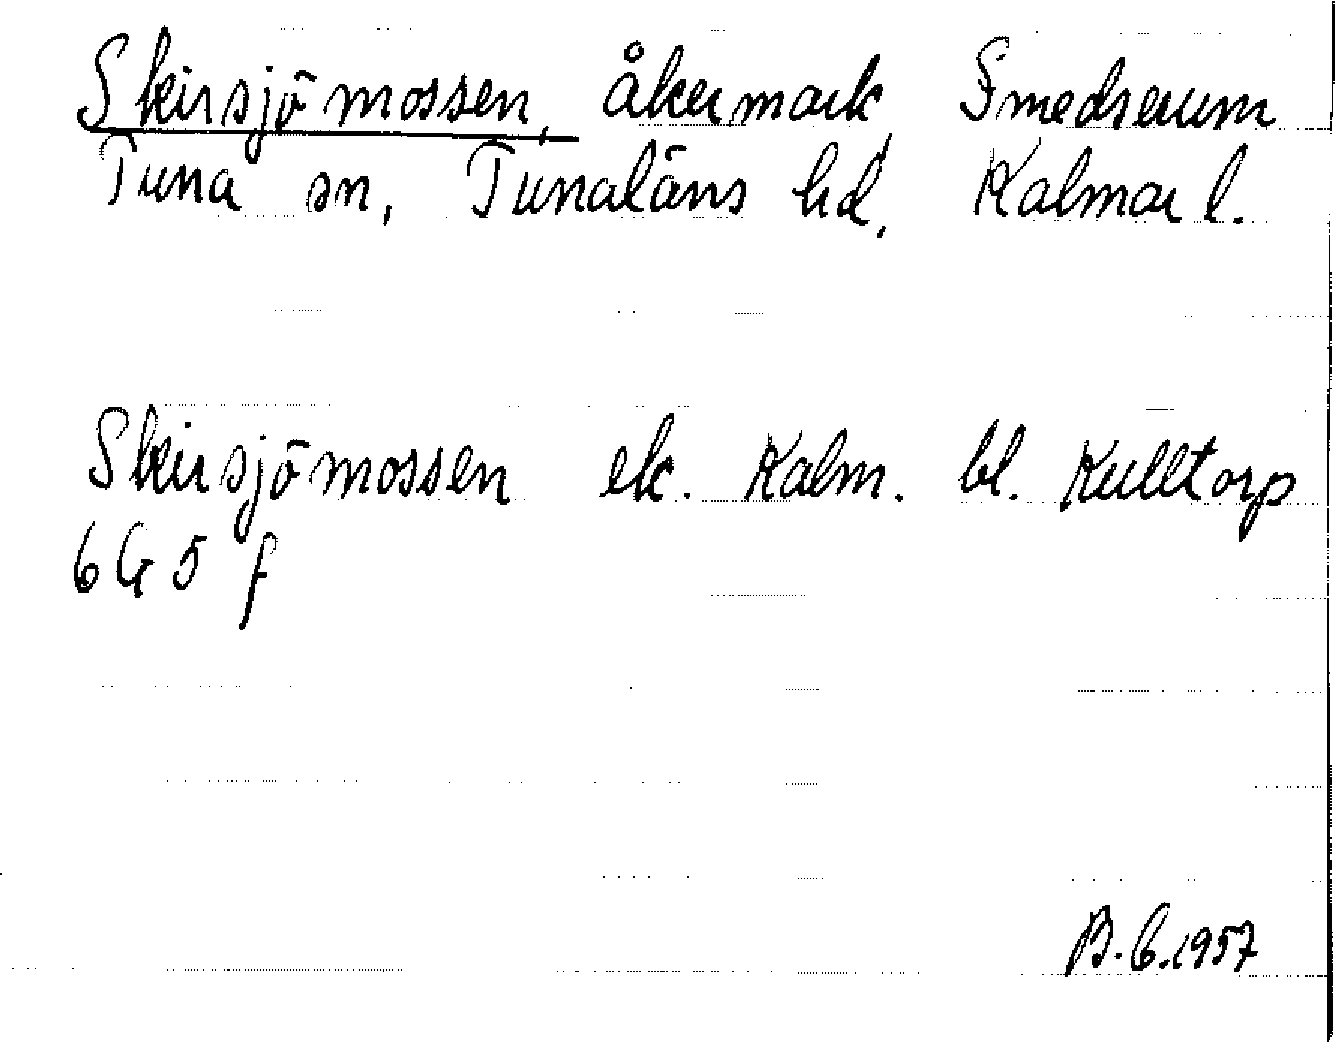 Skirsjömossen, åkermark, Smedserum
Tuna sn, Tunaläns hd, Kalmar l.
Skirsjömossen ek. Kalm. bl. Kulltorp
6G 5 f
B.C. 1957